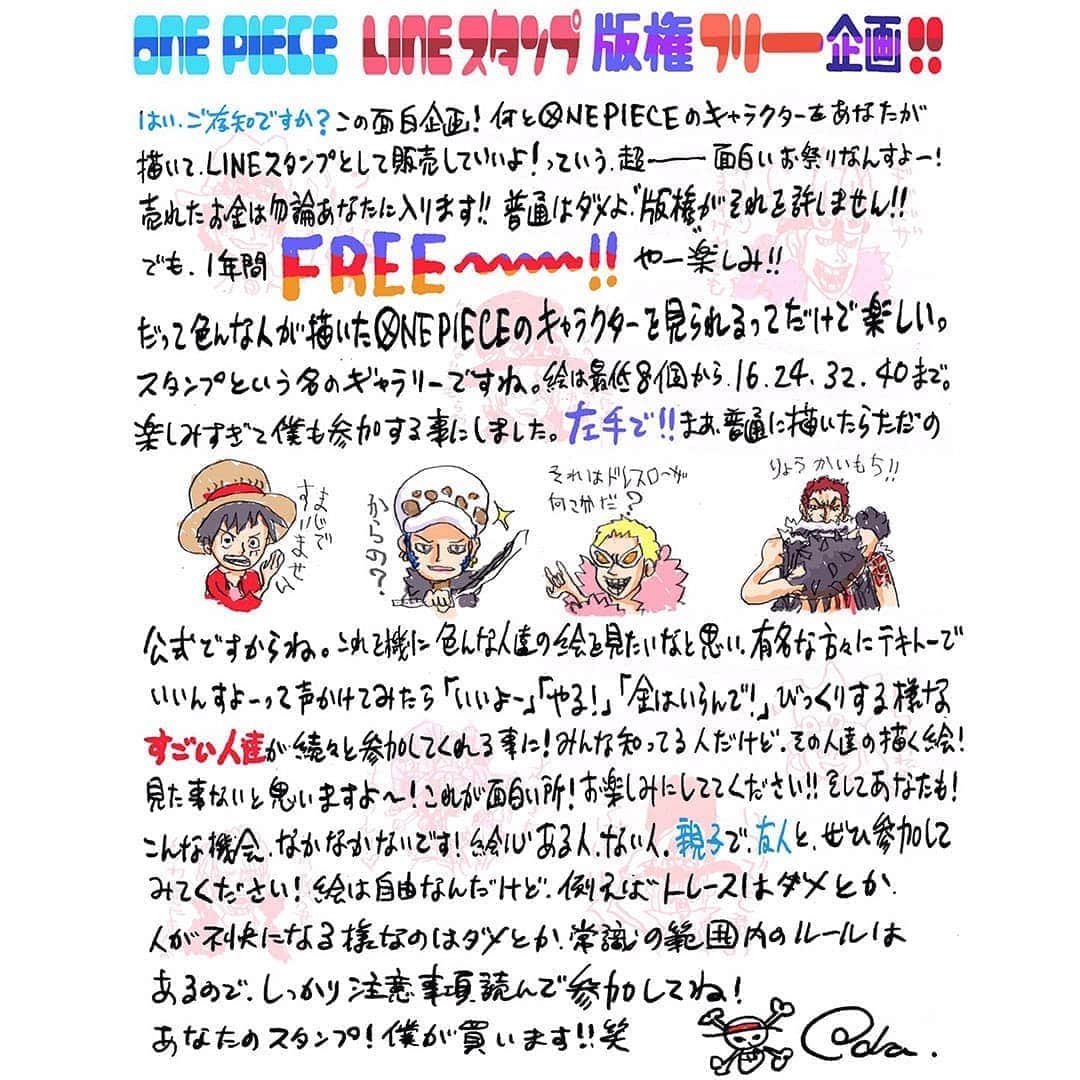 ONE PIECE LINEスタンプ版権フリー企画!!
はい、ご存知ですか?この面白企画!何とONEPIECEのキャラクターをあなたが
描いて、LINEスタンプとして販売していいよ!っていう、超——面白いお祭りなんすよー!
売れたお金は勿論あなたに入ります!!普通はダメよ、版権がそれを許しません!!
でも、1年間FREE〜〜!!やー楽しみ!!
だって色んな人が描いたONEPIECEのキャラクターを見られるってだけで楽しい。
スタンプという名のギャラリーですね。絵は最低8個から、16、24、32、40まで。
楽しみすぎて僕も参加する事にしました。左手で!!まあ、普通に描いたらただの
まじですいません
からの?
それはドレスローザ何さかだ?
りょうかいもち!!
公式ですからね。これを機に色んな人達の絵を見たいなと思い、有名な方々にテキトーで
いいんすよーって声かけてみたら「いいよー」「やる!」「金はいらんで!」びっくりする様な
すごい人達が続々と参加してくれる事に!みんな知ってる人だけど、その人達の描く絵!
見た事ないと思いますよ〜!これが面白い所!お楽しみにしててください!!そしてあなたも!
こんな機会、なかなかないです!絵心ある人、ない人、親子で、友人と、ぜひ参加して
みてください!絵は自由なんだけど、例えばトレースはダメとか、
人が不快になる様なのはダメとか、常識の範囲内のルールは
あるので、しっかり注意事項読んで参加してね!
あなたのスタンプ!僕が買います!!笑
Oda.